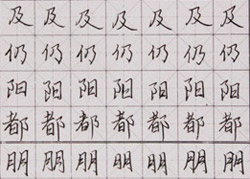 及 及 及 及 及 及 及
仍 仍 仍 仍 仍 仍 仍
阳 阳 阳 阳 阳 阳 阳
都 都 都 都 都 都 都
朋 朋 朋 朋 朋 朋 朋